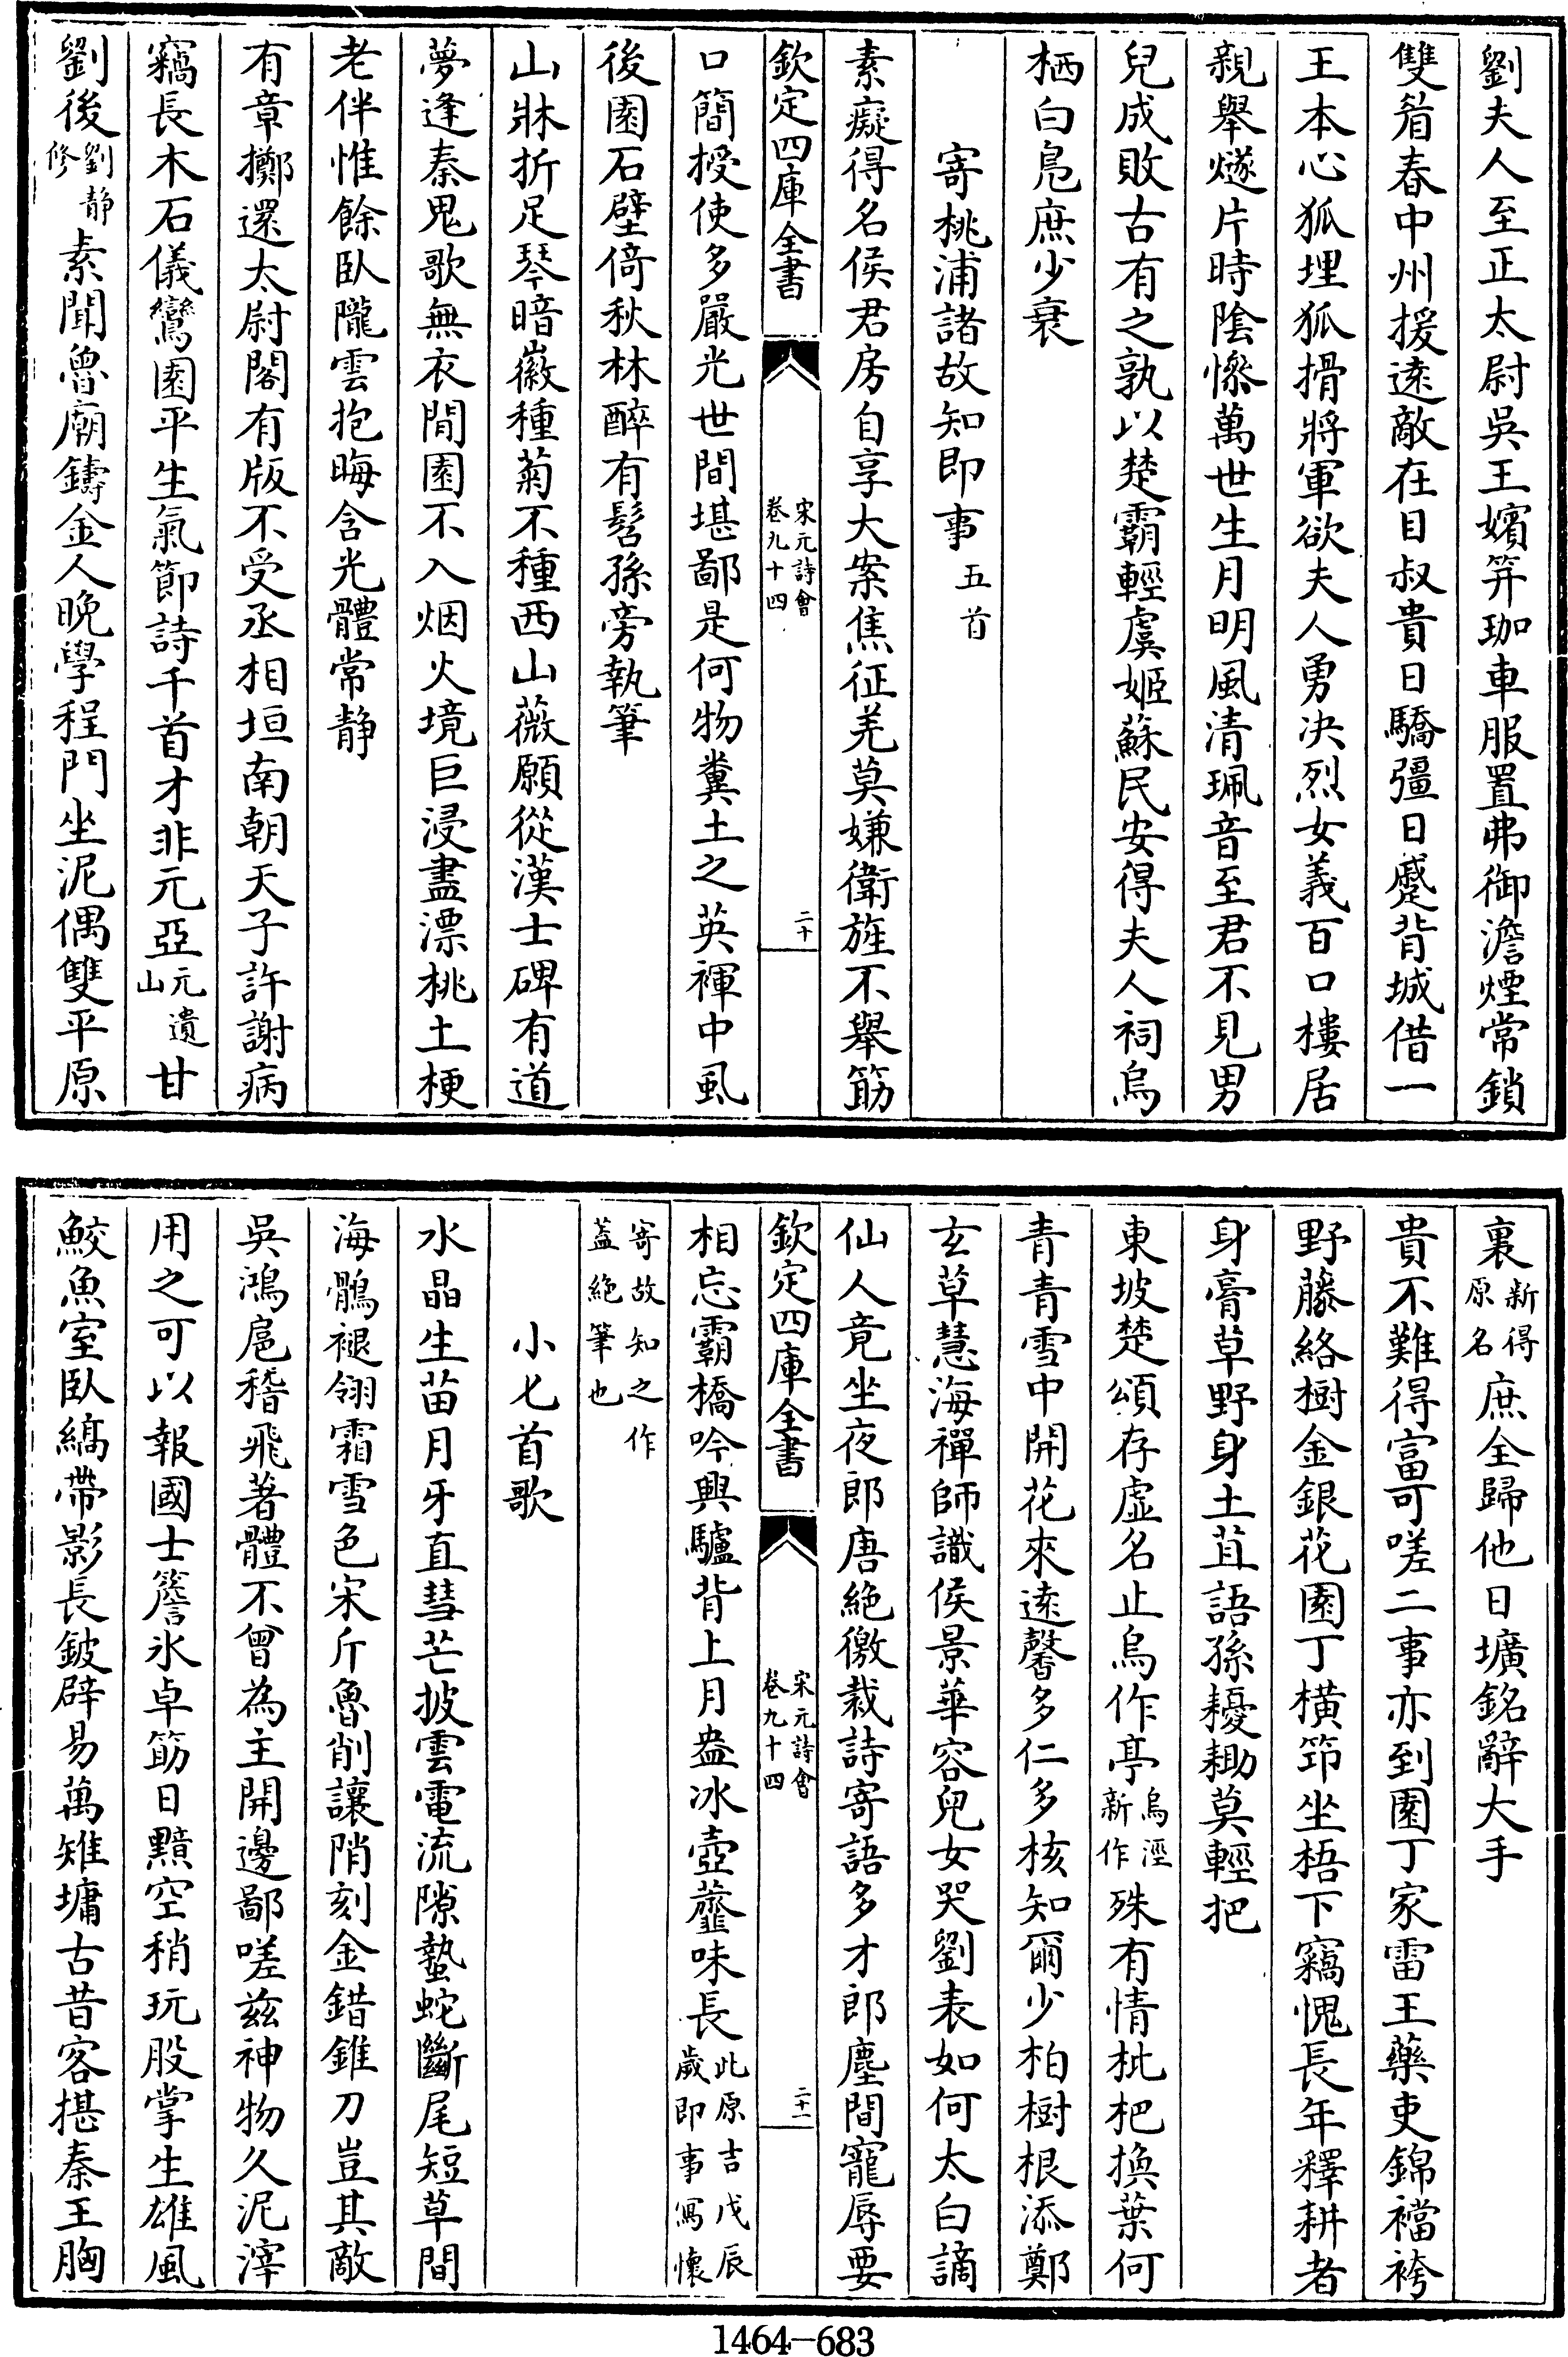 劉夫人至正太尉吳王嬪笄珈車服置弗御澹煙常鎖
雙眉春中州援遠敵在目叔貴日驕彊日蹙背城借一
王本心狐埋狐搰將軍欲夫人勇决烈女義百口樓居
親舉燧片時陰慘萬世生月明風清珮音至君不見男
兒成敗古有之孰以楚霸輕虞姬蘇民安得夫人祠烏
栖白鳬庶少衰
寄桃浦諸故知即事五首
素癡得名侯君房自享大案焦征羌莫嫌衛旌不舉筯
欽定四庫全書
宋元詩會
卷九十四
二十
口簡授使多嚴光世間堪鄙是何物糞土之英褌中虱
後園石壁倚秋林醉有髫孫旁執筆
山牀折足琴暗徽種菊不種西山薇願從漢士碑有道
夢逢秦鬼歌無衣閒園不入烟火境巨浸盡漂桃土梗
老伴惟餘臥隴雲抱晦含光體常静
有章擲還太尉閣有版不受丞相垣南朝天子許謝病
竊長木石儀鸞園平生氣節詩千首才非元亞元遺山甘
劉後劉静修素聞魯廟鑄金人晚學程門坐泥偶雙平原
裏新得原名庶全歸他日壙銘辭大手
貴不難得富可嗟二事亦到園丁家雷王藥吏錦襠袴
野藤絡樹金銀花園丁横笻坐梧下竊愧長年釋耕者
身膏草野身土苴語孫耰耡莫輕把
東坡楚頌存虚名止烏作亭烏涇新作殊有情枇杷換葉何
青青雪中開花來遠馨多仁多核知爾少柏樹根添鄭
玄草慧海禪師識侯景華容兒女哭劉表如何太白謫
仙人竟坐夜郎唐絶徼裁詩寄語多才郎塵間寵辱要
欽定四庫全書
宋元詩會
卷九十四
二十一
相忘霸橋吟興驢背上月盎冰壺虀味長此原吉戊辰歲即事寫懷
寄故知之作蓋絶筆也
小匕首歌
水晶生苗月牙直彗芒披雲電流隙蟄蛇斷尾短草間
海鶻褪翎霜雪色宋斤魯削讓陗刻金錯錐刀豈其敵
吳鴻扈稽飛著體不曾為主開邊鄙嗟兹神物久泥滓
用之可以報國士簷氷卓筯日黯空稍玩股掌生雄風
鮫魚室臥縞帶影長鈹辟易萬雉墉古昔客揕秦王胸
1464-683